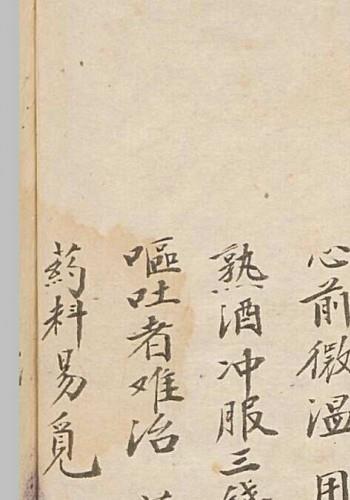 心前微温用
熟酒冲服三錢
嘔吐者难治
药料易覓